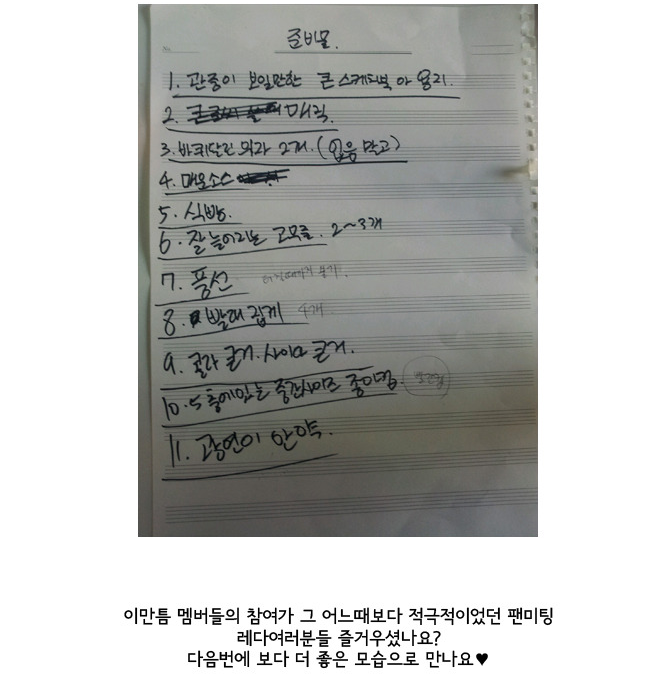 준비물.
1. 관중이 보일만한 큰 스케치북 or 용지.
2. 매직.
3. 바퀴달린 의자 2개. (있음 말고)
4. 매운소스
5. 식빵.
6. 잘 늘어나는 고무줄. 2~3개
7. 풍선 터질때까지 불기.
8. 빨래 집게 4개
9. 콜라 큰거. 사이다 큰거.
10. 5층에있는 중간사이즈 종이컵.
11. 광연이 안약.
이만틈 멤버들의 참여가 그 어느때보다 적극적이었던 팬미팅
레다여러분들 즐거우셨나요?
다음번에 보다 더 좋은 모습으로 만나요♥